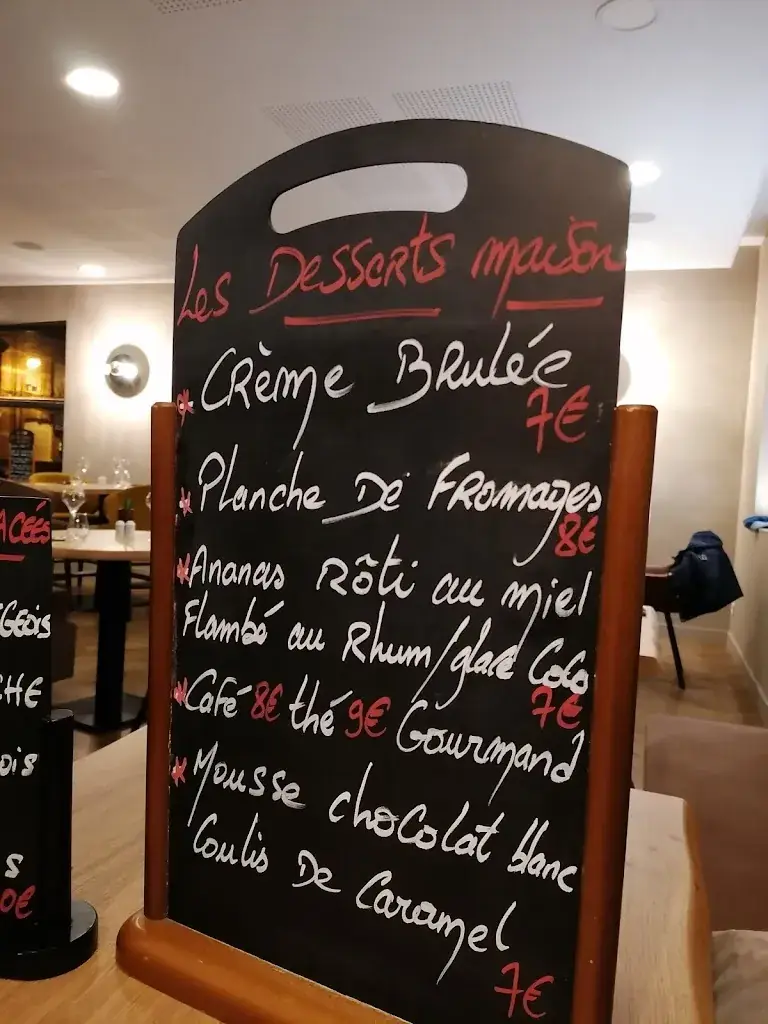 Les Desserts maison
* Crème Brulée
7€
* Planche De Fromages
8€
* Ananas Rôti au miel
Flambé au Rhum/glace Coco
7€
* Café 8€ thé 9€ Gourmand
* Mousse chocolat blanc
Coulis De Caramel
7€